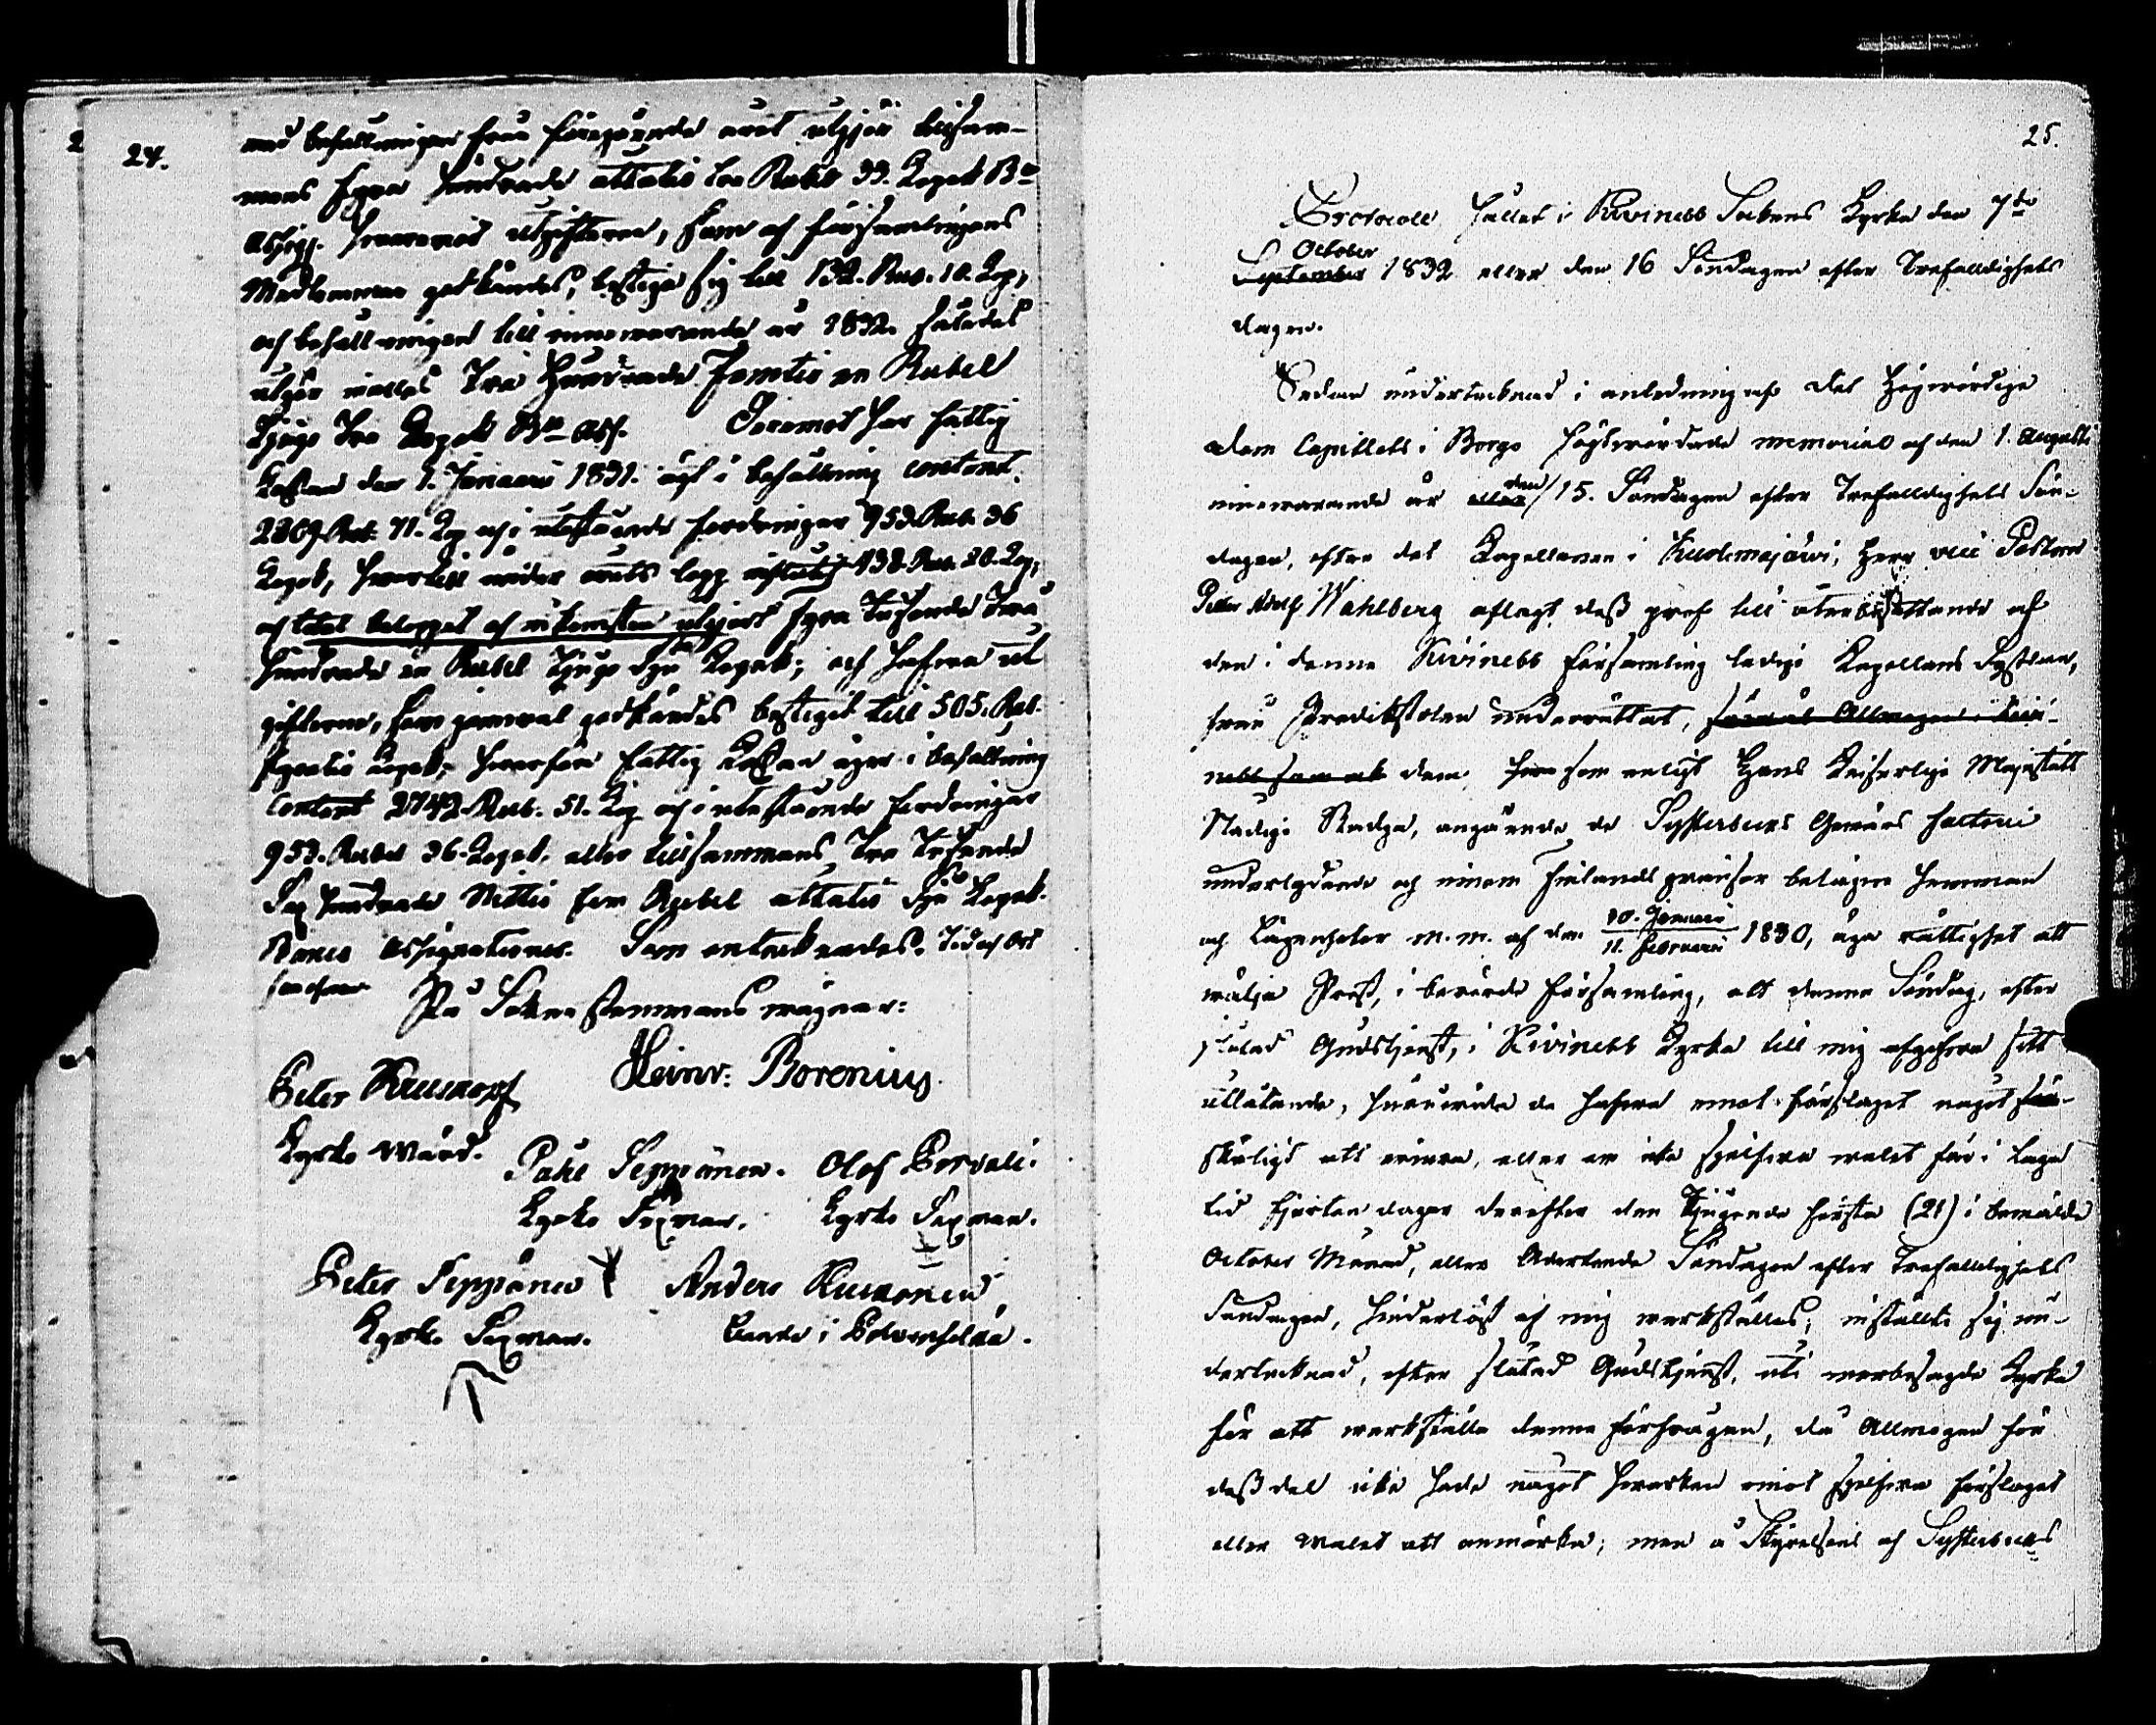 24.
med behållningen från föregående året utgjör tillsam-
mans fyra hundrade åttatio tre Rubel 33. Kopek Bco
Assign. hvaremot utgifterna, som af församlingens
Medlemmar godkändes, bestiga sig till 132. Rub. 10. Kop,
och behållningen till innevarande år 1832. således
utgör Tre Hundrade Femtio en Rubel
Tjugo Tre Kopek Bco Ass. Deremot har fattig
Kassan den 1. Januari 1831. ägt i behållning contant
2809 Rub. 71. Kop och i utestående fordringar 953 Rub. 36
Kopek, hvartill under årets lopp influtit 438. Rub. 20. Kop,
och total beloppet af inkomsten utgjort fyra Tusende Två
hundrade en Rubel Tjugo sju Kopek; och hafva ut
gifterna, som jemväl godkändes bestigit till 505. Rub.
Kopek, hvarföre fattig Kassan äger i behållning
Contant 2742 Rub. 51. Kop och i utestående fordringar
953. Rubel 36. Kopek. eller tillsammans Tre Tusende
Sex hundrade Nittio fem Rubel åttatio sju Kopek.
Banco Assignationer. Som antecknades. Tid och Ort
som ofvan
På Sockne stemmans vägnar:
Heinr: Borenius
Peter Kuusnopf
Kyrko Wärd.
Påhl Seppänen. Olof Porvali.
Kyrko Sexman. Kyrko Sexman.
Peter Seppänen Anders Kuokonen
Kyrko Sexman. Bonde i
25.
Protocoll hållet i Kivinebb Sockens Kyrka den 7de
October
September 1832 eller den 16 Söndagen efter Trefaldighets
dagen.
Sedan undertecknad i anledning af det Högvördiga
Dom Capitlets i Borgo högtvördade memorial af den 1. Augusti
innevarande år eller den 15. Söndagen efter Trefalldighets Sön-
dagen, efter det Kapellanen i Kuolemajärvi, Herr vice Pastor
Petter Adolf Wahlberg aflagt dess prof till återbesättande af
den i denna Kivinebb församling lediga Kapellans Sysslan,
från Predikstolen underrättat, såväl Allmogen i Kivi-
nebb som ock dem som enligt Hans Kejserliga Majestäts
Nådiga Stadga, angående de Systerbäcks Gevärs factori
underlydande och innom Finlands gränser belägne hemman
och Lägenheter m.m. af den 30. Januari / 11. Februari 1830, äga rättighet att
välja Prest, i berörde församling, att denne Söndag, efter
slutad Gudstjenst, i Kivinebb Kyrka till mig afgifva sitt
utlåtande, huruvida de hafva emot förslaget något
skäligt att erinra, eller om icke sjelfva valet får i laga
tid fjorton dagar derefter den Tjugonde första (21) i bemälde
October Månad, eller Adertonde Söndagen efter Trefalldighets
Söndagen, hinderlöst af mig verkställas; instälte sig un-
dertecknad, efter slutad Gudstjenst, uti merbesagde Kyrka
för att verkställa denna förfrågan, då Allmogen för
dess del icke hade något hvarken emot sjelfva förslaget
eller Valet att anmärka; men å Styrelsens af Systerbäcks